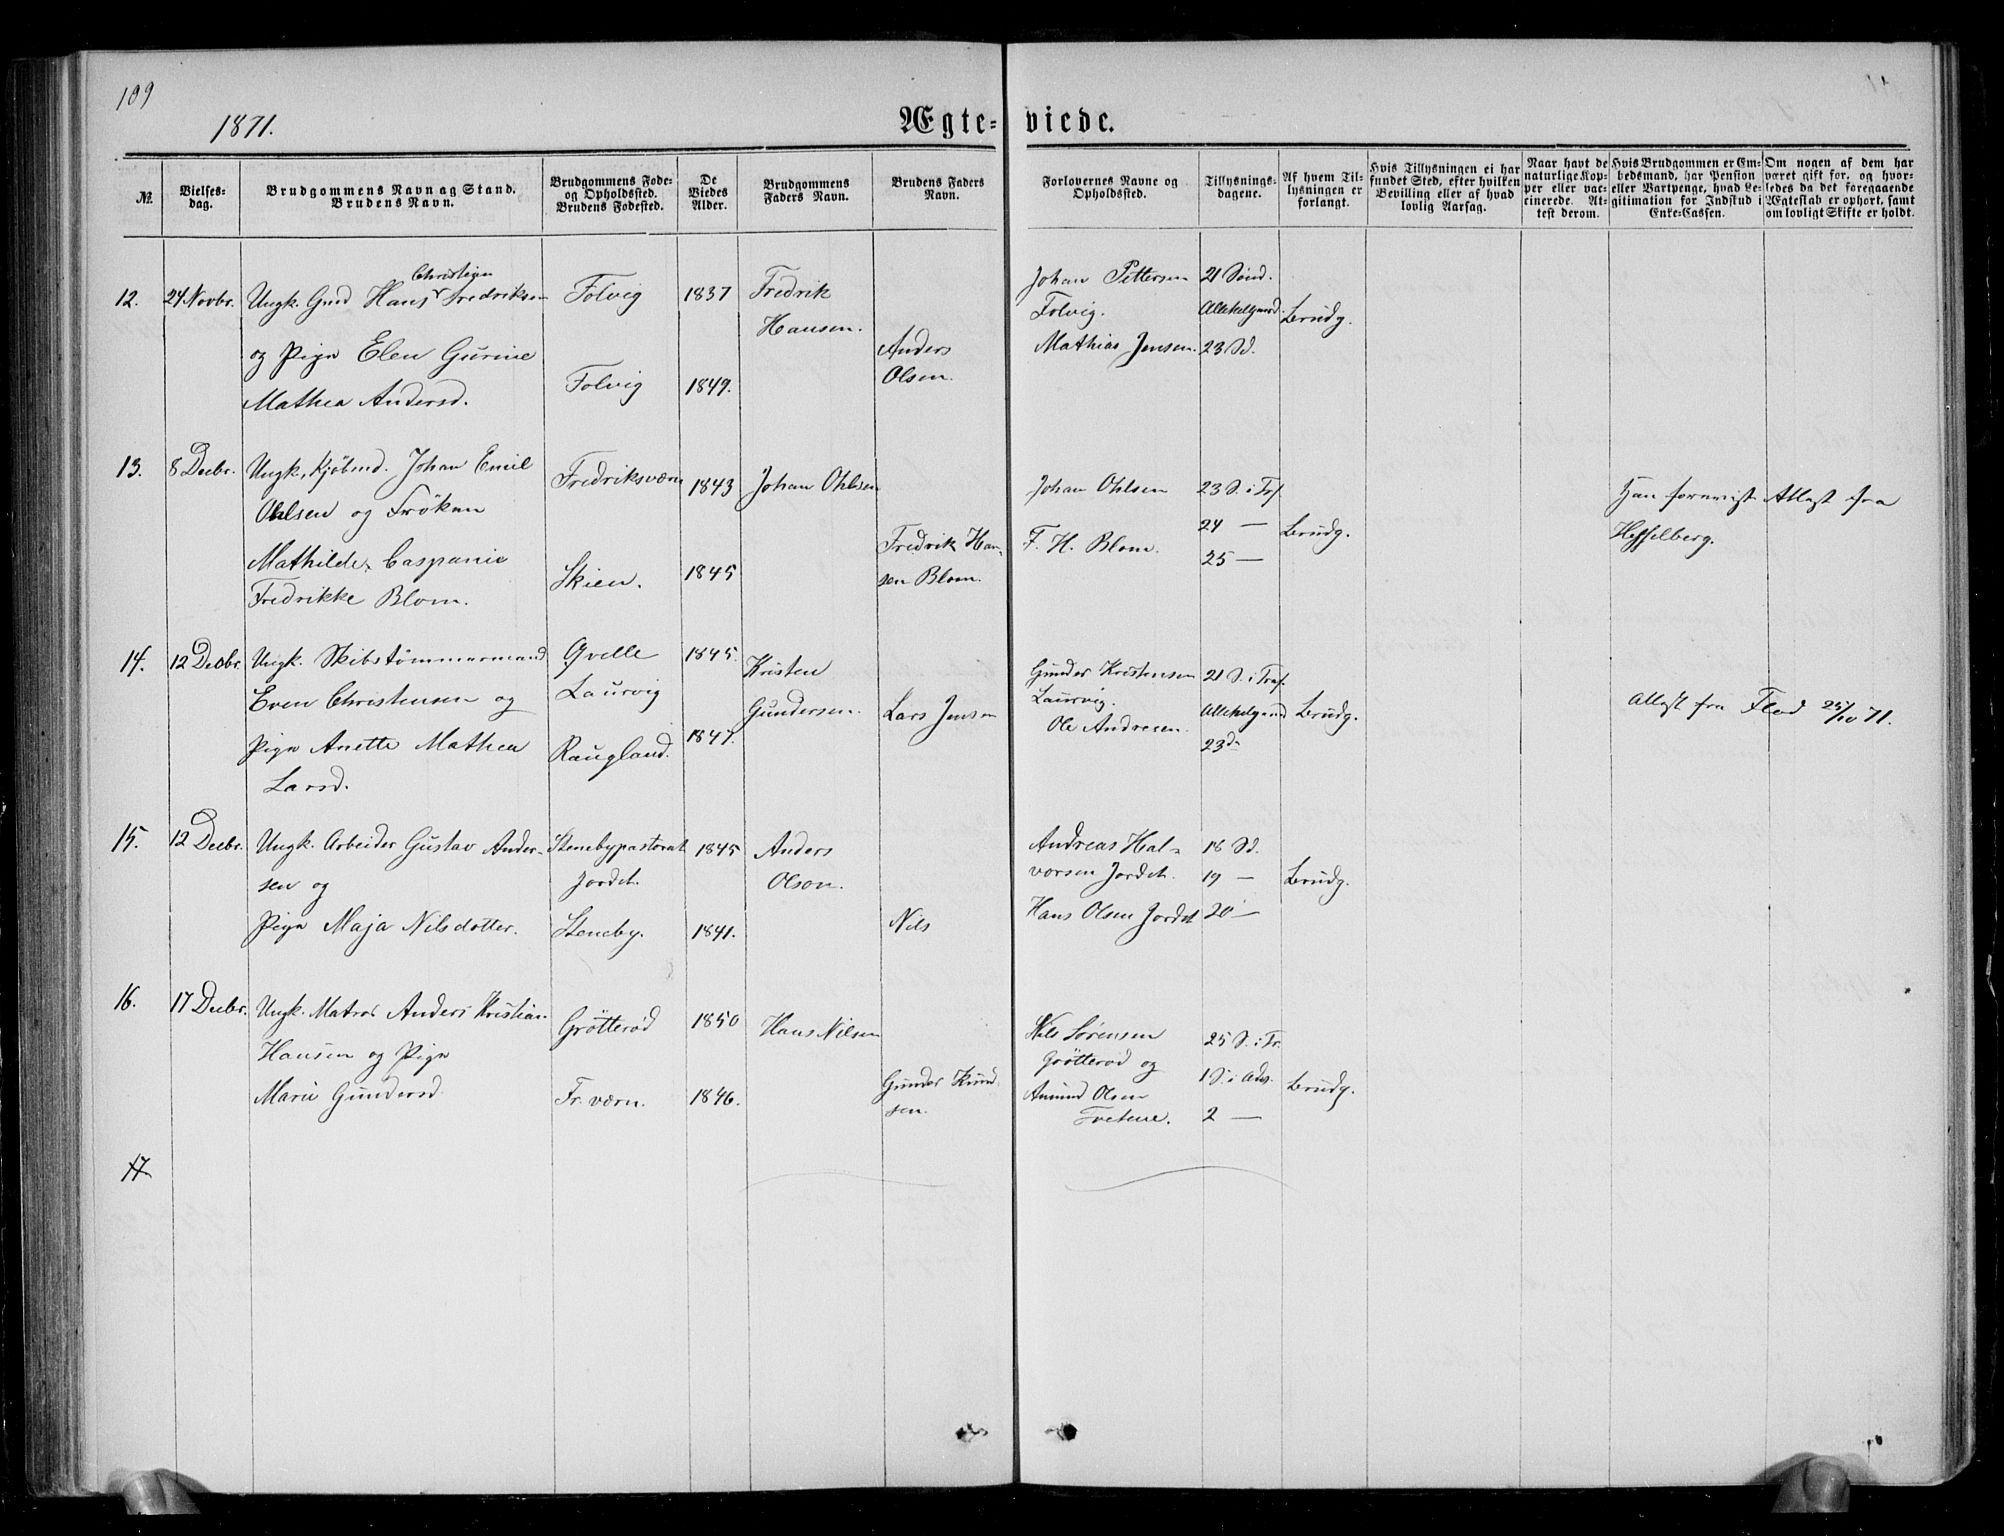 109
1871.
Ægte-viede.
№
Vielses-dag.
Brudgommens Navn ag Stand.
Brudens Navn.
Brudgommens Føde- og Opholdssted.
Brudens Fødested.
De Viedes Alder.
Brudgommens Faders Navn.
Brudens Faders Navn.
Forlovernes Navne og Opholdssted.
Tillysnings-dagene.
Af hvem Til-lysningen er forlangt.
Hvis Tillysningen ei har fundet Sted, efter hvilken Bevilling eller af hvad lovlig Aarsag.
Naar havt de naturlige Kop-per eller vac-cinerede. At-test derom.
Hvis Brudgommen er Em-bedsmand, har Pension eller Vartpenge, hvad Le-gitimation for Indskud i Enke-Cassen.
Om nogen af dem har været gift før, og hvor-ledes da det foregaaende Ægteskab er ophørt, samt om lovligt Skifte er holdt.
12. 24 Novbr. Ungk. Gmd Hans Christian Fredriksen Folvig 1837 Fredrik Hansen.
og Pige Elen Gurine
Mathea Andersd. Folvig 1849. Anders Olsen.
Johan Pettersen 21 Sønd.
Folvig. Allehelgensd. Brudg.
Mathias Jensen. 23 Sd.
13. 8 Decbr. Ungk. Kjøbmd. Johan Emil Fredriksværn 1843 Johan Ohlsen
Ohlsen og Frøken
Mathilde Caspanie Skien. 1845 Fredrik Han-
Fredrikke Blom. sen Blom.
Johan Ohlsen 23 S. i Trf.
F. H. Blom. 24 — Brudg.
25 —
Han forevist Attest fra
Hesselberg.
14. 12 Decbr. Ungk. Skibstømmermand Qvelle 1845. Kristen
Even Christensen og Laurvig Gundersen.
Pige Anette Mathea Raugland. 1847. Lars Jensen
Larsd.
Gunder Kristensen 21 S. i Tref.
Laurvig. Allehelgensd Brudg.
Ole Andresen. 23 d
Attest fra Flod 25/10 71.
15. 12 Decbr. Ungk. Arbeider Gustav Ander- Stenebypastorat 1845 Anders
sen og Jordet. Olson.
Pige Maja Nilsdotter. Steneby. 1841. Nils
Andreas Hal- 18 Sd.
vorsen Jordet. 19 — Brudg.
Hans Olsen Jordet 20 —
16. 17 Decbr. Ungk. Matros Anders Kristian Grøtterød 1850 Hans Nilsen
Hansen og Pige
Marie Gundersd. Fr. værn. 1846. Gunder Knud-
sen.
Nils Sørensen 25 S. i Tr.
Grøtterød og 1 S. i Adv. Brudg.
Amund Olsen 2 —
Tvetene.
17